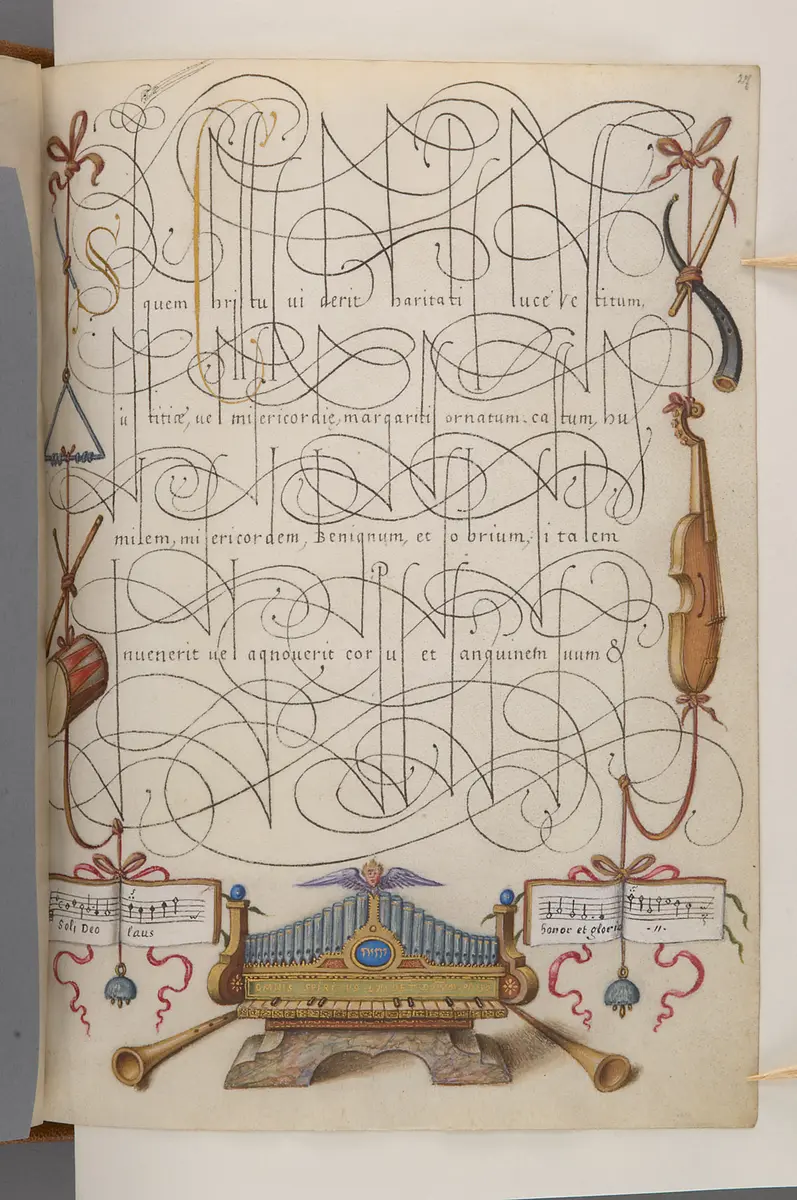 27
Si quem Christus uiderit charitatis luce vestitum,
iustitiæ, uel misericordię, margaritis ornatum, castum, hu
milem, misericordem, Benignum, et sobrium, si talem
inuenerit uel agnouerit corpus et sanguinem suum &
Soli Deo laus
honor et gloria -11-
יהוה
OMNIS SPIRITUS LAUDET DOMINUM